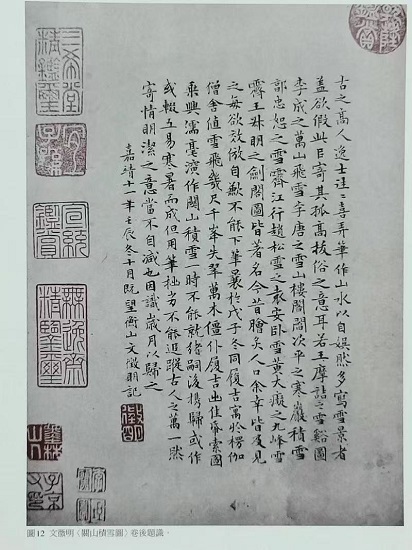 古之高人逸士往〻喜弄筆作山水以自娛然多寫雪景者
蓋欲假此以寄其孤高拔俗之意耳若王摩詰之雪谿圖
李成之萬山飛雪李唐之雪山樓閣閻次平之寒巖積雪
郭忠恕之雪霽江行趙松雪之袁安臥雪黃大癡之九峰雪
霽王叔明之劍閣圖皆著名今昔膾炙人口余幸皆及見
之每欲效倣自歉不能下筆曩於戊子冬同履吉寓於楞伽
僧舍值雪飛幾尺千峯失翠萬木僵仆履吉出佳帋索圖
乘興濡毫演作關山積雪一時不能就緒嗣後攜歸或作
或輟五易寒暑而成但用筆拙劣不能追蹤古人之萬一然
寄情明潔之意當不自減也因識歲月以歸之
嘉靖十一年壬辰冬十月既望衡山文徵明記
徵明
三希堂精鑑璽
宜子孫
宣統鑑賞
無逸齋精鑒璽
圖12 文徵明〈關山積雪圖〉卷後題識。